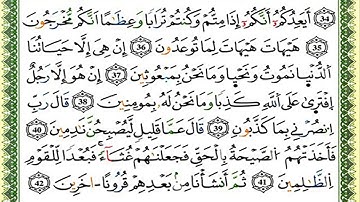 (34) أَيَعِدُكُمُۥ أَنَّكُمُۥ إِذَا مِتُّمْ وَكُنتُمْ تُرَابًا وَعِظَٰمًا أَنَّكُم مُّخْرَجُونَ
(35) هَيْهَاتَ هَيْهَاتَ لِمَا تُوعَدُونَ (36) إِنْ هِىَ إِلَّا حَيَاتُنَا
ٱلدُّنْيَا نَمُوتُ وَنَحْيَا وَمَا نَحْنُ بِمَبْعُوثِينَ (37) إِنْ هُوَ إِلَّا رَجُلٌ
ٱفْتَرَىٰ عَلَى ٱللَّهِ كَذِبًا وَمَا نَحْنُ لَهُۥ بِمُومِنِينَ (38) قَالَ رَبِّ
ٱنصُرْنِى بِمَا كَذَّبُونِ (39) قَالَ عَمَّا قَلِيلٍ لَّيُصْبِحُنَّ نَٰدِمِينَ (40)
فَأَخَذَتْهُمُ ٱلصَّيْحَةُ بِٱلْحَقِّ فَجَعَلْنَٰهُمْ غُثَآءً فَبُعْدًا لِّلْقَوْمِ
ٱلظَّٰلِمِينَ (41) ثُمَّ أَنشَأْنَا مِنۢ بَعْدِهِمْ قُرُونًا ءَاخَرِينَ (42)